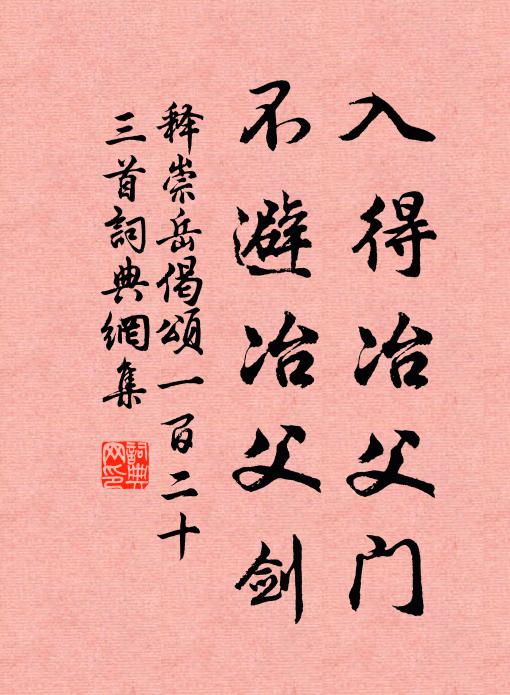 入得冶父门
不避冶父剑
释崇岳偈颂一百二十
三首詞典網集
詞典网印